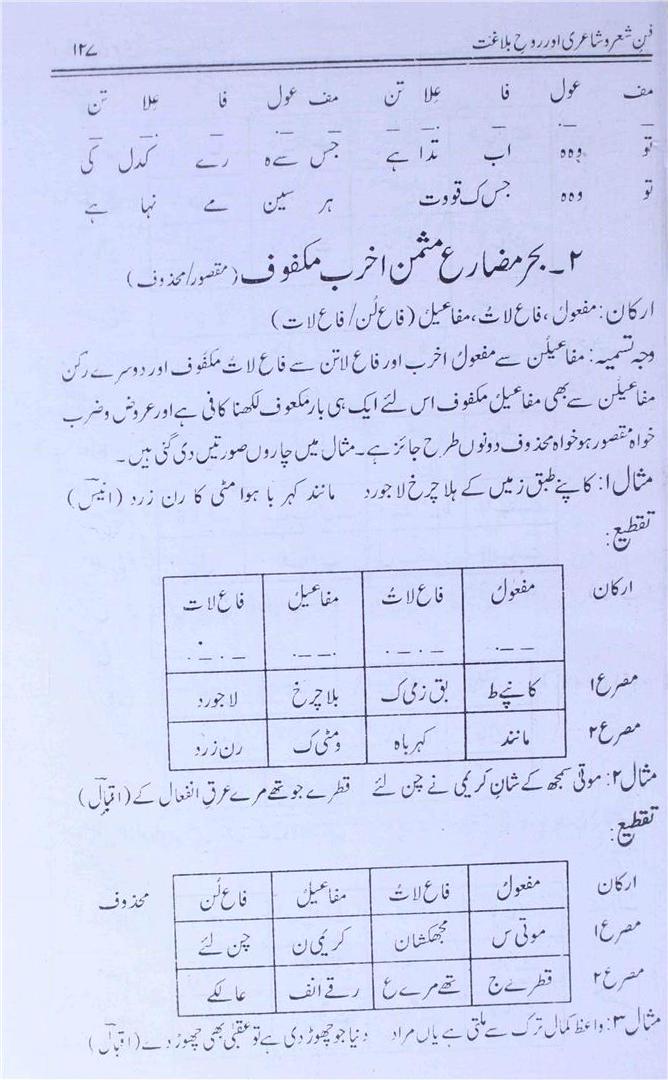 فنِ شعر و شاعری اور روحِ بلاغت ۱۲۷
مف عول فا عِلا تن مف عول فا عِلا تن
تو وہ ہ اب تدا ہے جس سے ہ رے کدل کی
تو وہ ہ جس ک قووت ہر سین مے نہا ہے
۲۔ بحر مضارع مثمن اخرب مکفوف (مقصور/محذوف)
ارکان: مفعولُ، فاع لاتُ، مفاعیلُ (فاع لُن/فاع لات)
وجہ تسمیہ: مفاعیلُن سے مفعولُ اخرب اور فاع لاتن سے فاع لاتُ مکفّوف اور دوسرے رکن
مفاعیلُن سے بھی مفاعیلُ مکفوف اس لئے ایک ہی بار مکعوف لکھنا کافی ہے اور عروض و ضرب
خواہ مقصور ہو خواہ محذوف دونوں طرح جائز ہے۔ مثال میں چاروں صورتیں دی گئی ہیں۔
مثال ۱: کانپے طبق زمیں کے ہلا چرخ لاجورد مانند کہر با ہوا مٹی کا رن زرد (انیسؔ)
تقطیع:
ارکان مفعولُ فاع لاتُ مفاعیلُ فاع لات
مصرع ۱ کانپے ط بق زمی ک ہلا چرخ لاجورد
مصرع ۲ مانند کہر باہ ومٹی ک رن زرد
مثال ۲: موتی سمجھ کے شانِ کریمی نے چن لئے قطرے جو تھے مرے عرقِ انفعال کے (اقبالؔ)
تقطیع:
ارکان مفعولُ فاع لاتُ مفاعیلُ فاع لُن محذوف
مصرع ۱ موتی س مجھکشان کریمی ن چن لئے
مصرع ۲ قطرے ج تھے مرے ع رقے انف عالکے
مثال ۳: واعظ کمال ترک سے ملتی ہے یاں مراد دنیا جو چھوڑ دی ہے تو عقبیٰ بھی چھوڑ دے (اقبالؔ)